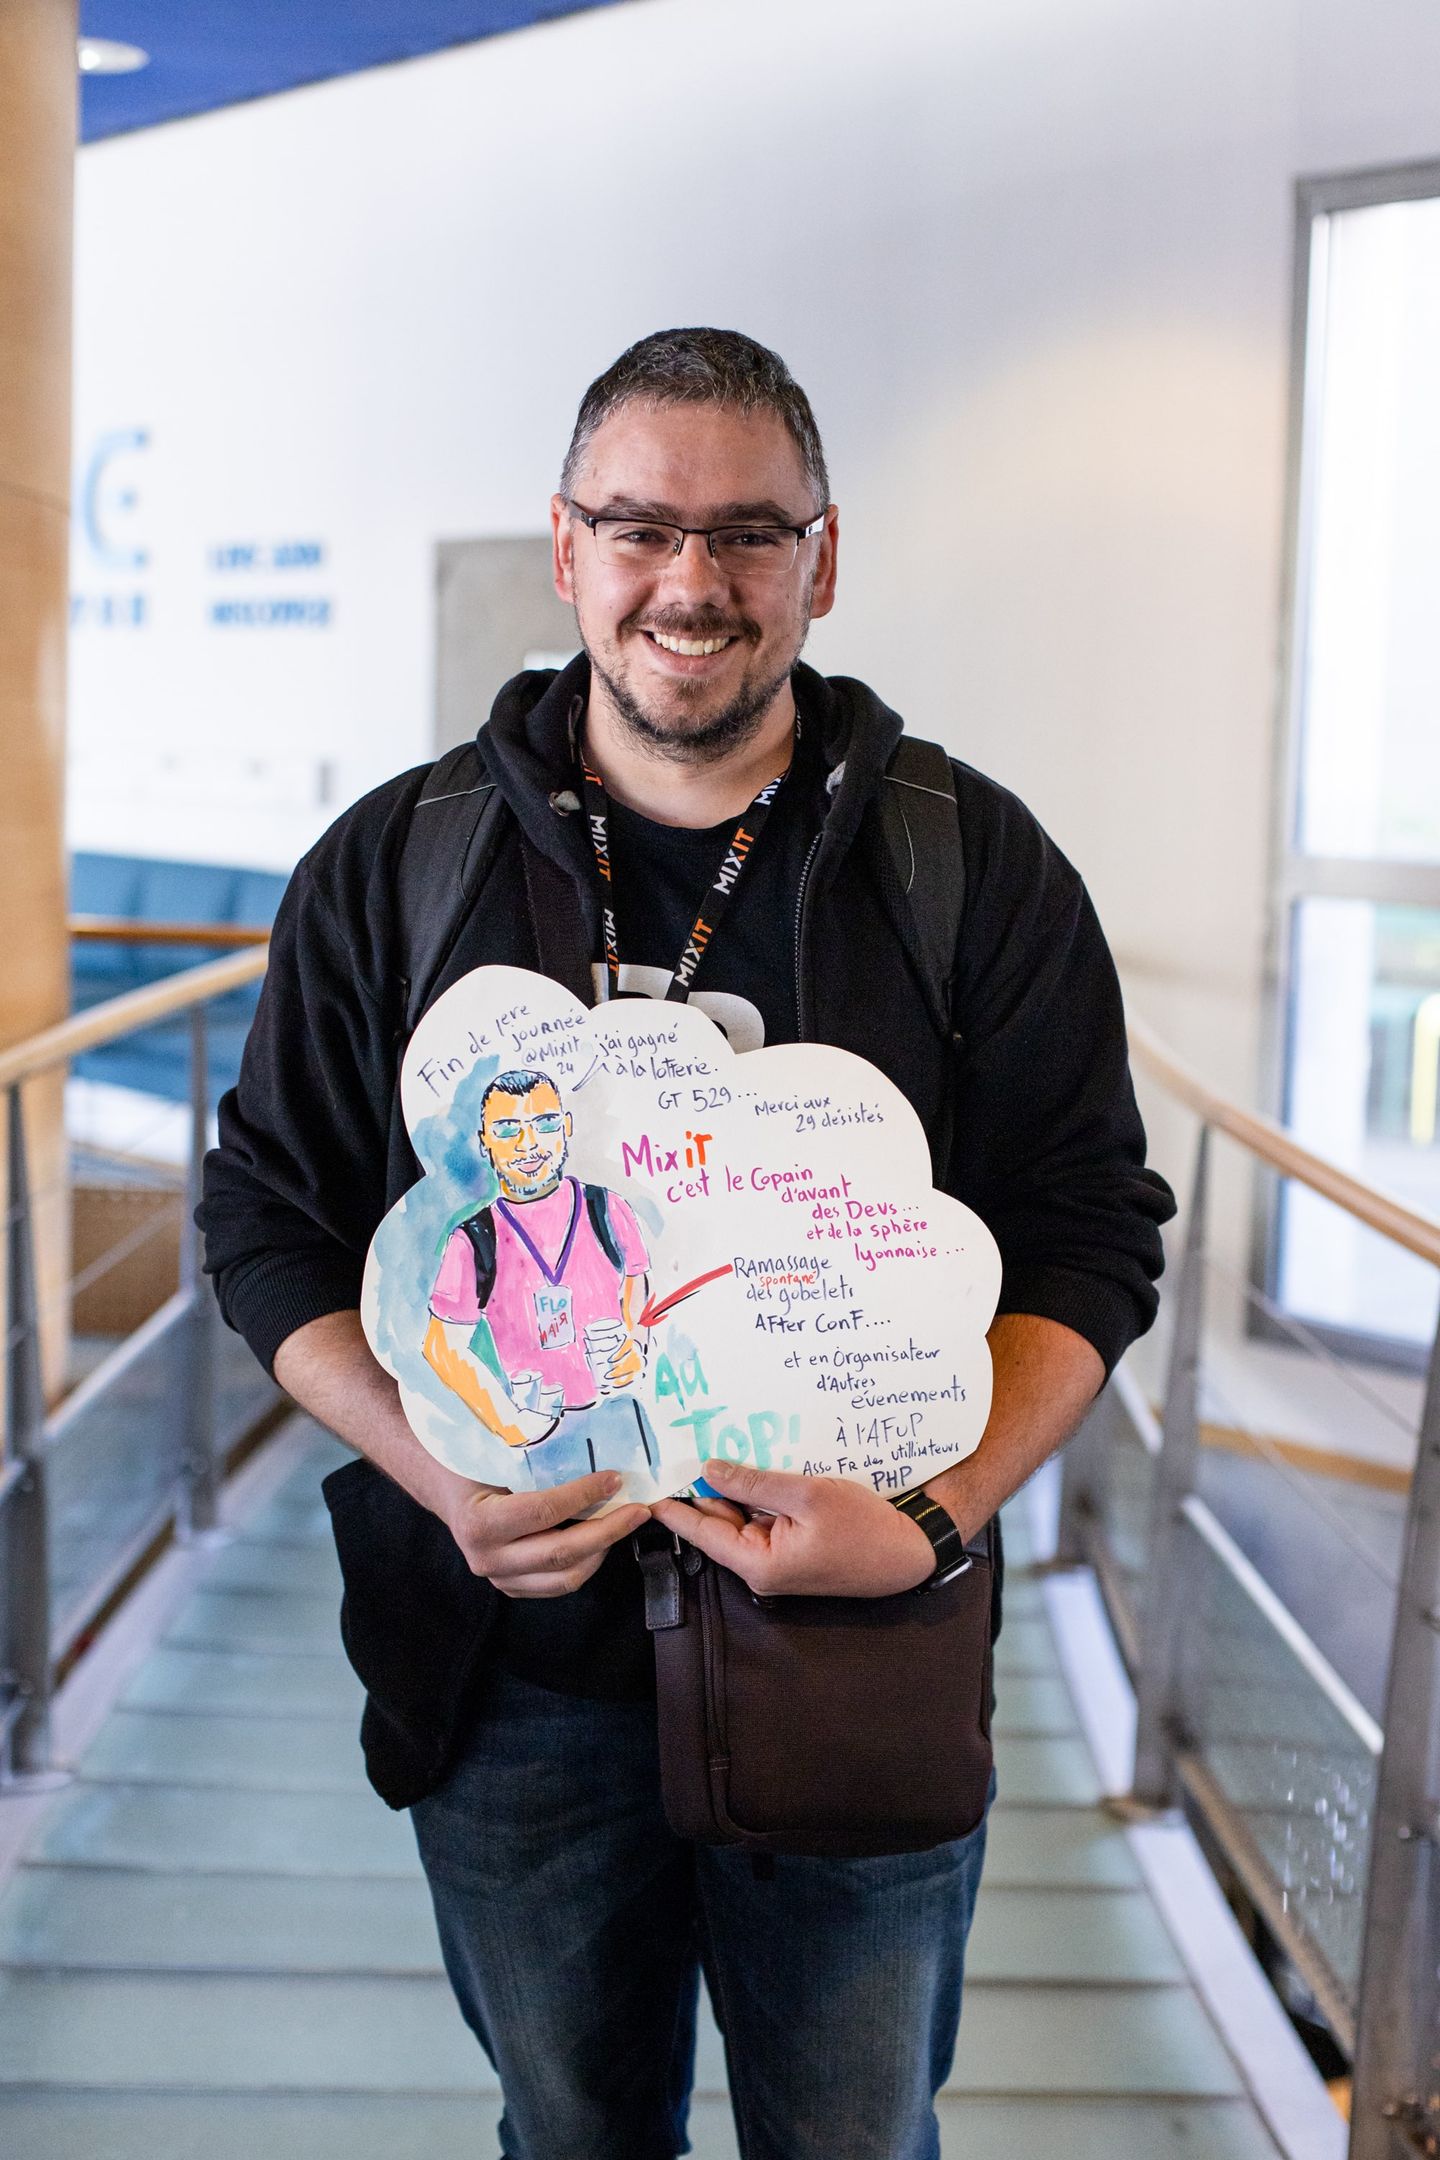 MIXIT
MIXIT
MIXIT
MIXIT
MIX
Fin de 1ere
journée
@Mixit
24
j'ai gagné
à la lotterie.
GT 529...
Merci aux
29 désistés
Mixit
c'est le Copain
d'avant
des Devs...
et de la sphère
lyonnaise...
RAmassage
spontané
des gobelets
AFter ConF....
et en Organisateur
d'Autres
évenements
à l'AFUP
Asso FR des utilisateurs
PHP
FLO
HAIR
AU
TOP!